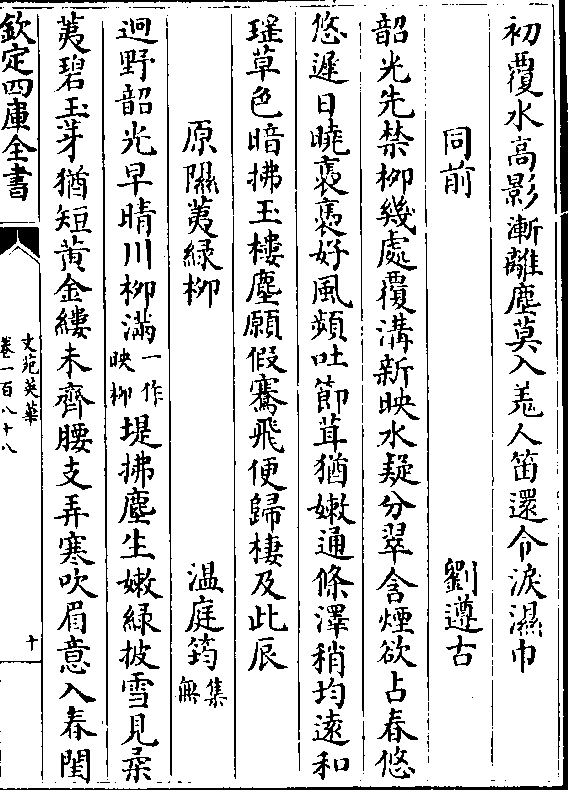 初覆水高影漸離塵莫入羌人笛還令淚濕巾
同前　劉遵古
韶光先禁柳幾處覆溝新映水疑分翠含煙欲占春悠
悠遲日曉裊裊好風頻吐節茸猶嫩通條澤稍均遠和
瑤草色暗拂玉樓塵願假騫飛便歸棲及此辰
原隰荑綠柳　温庭筠集無
迥野韶光早晴川柳滿一作映柳堤拂塵生嫩綠披雪見柔
荑碧玉芽猶短黄金縷未齊腰支弄寒吹眉意入春閨
欽定四庫全書
文苑英華
卷一百八十八
十